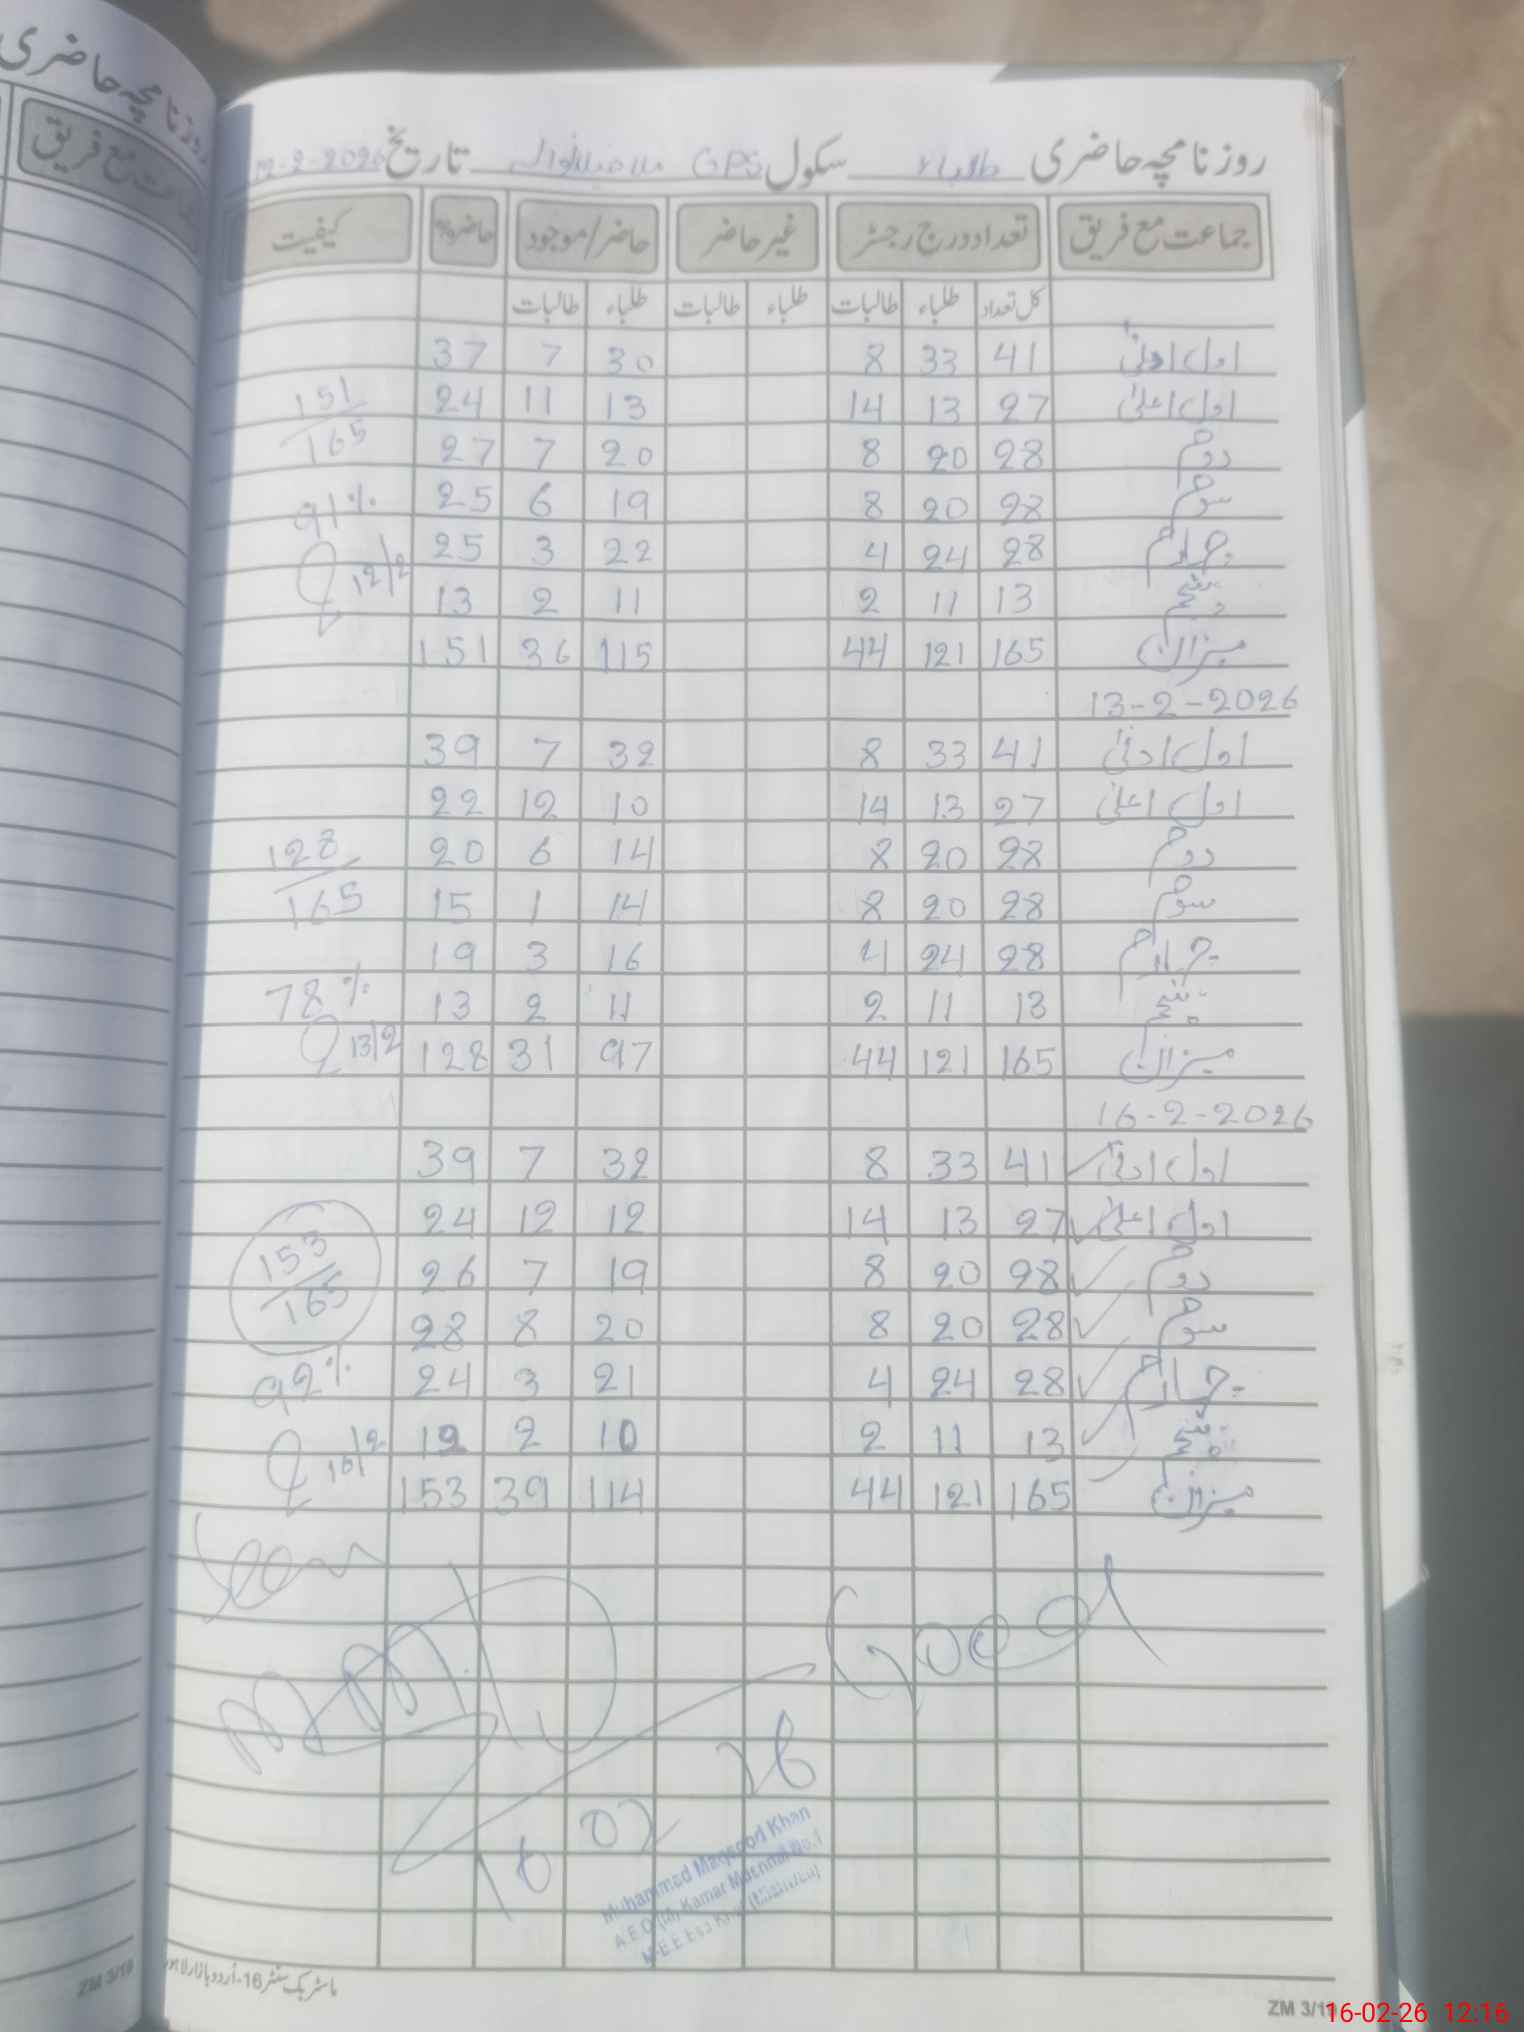 روزنامچہ حاضری طلباء سکول GPS تاریخ 12-2-2026
جماعت مع فریق تعداد درج رجسٹر غیر حاضر حاضر/موجود حاضر% کیفیت
کل تعداد طلباء طالبات طلباء طالبات طلباء طالبات
اول ادنیٰ 41 33 8 30 7 37
اول اعلیٰ 27 13 14 13 11 24 151/165
دوم 28 20 8 20 7 27
سوم 28 20 8 19 6 25 91%
چہارم 28 24 4 22 3 25 12/2
پنجم 13 11 2 11 2 13
میزان 165 121 44 115 36 151
13-2-2026
اول ادنیٰ 41 33 8 32 7 39
اول اعلیٰ 27 13 14 10 12 22
دوم 28 20 8 14 6 20 128/165
سوم 28 20 8 14 1 15
چہارم 28 24 4 16 3 19
پنجم 13 11 2 11 2 13 78%
میزان 165 121 44 97 31 128 13/2
16-2-2026
اول ادنیٰ 41 33 8 32 7 39
اول اعلیٰ 27 13 14 12 12 24
دوم 28 20 8 19 7 26 153/165
سوم 28 20 8 20 8 28
چہارم 28 24 4 21 3 24 92%
پنجم 13 11 2 10 2 12 16/2
میزان 165 121 44 114 39 153
Seen
Good
16 02 26
Muhammad Maqsood Khan
A.E.O (M) Kamar Mashani No.1
ماسٹر بک سنٹر 16-اردو بازار لاہور
ZM 3/19
ZM 3/1
روزنامچہ حاضری
جماعت مع فریق
16-02-26 12:16